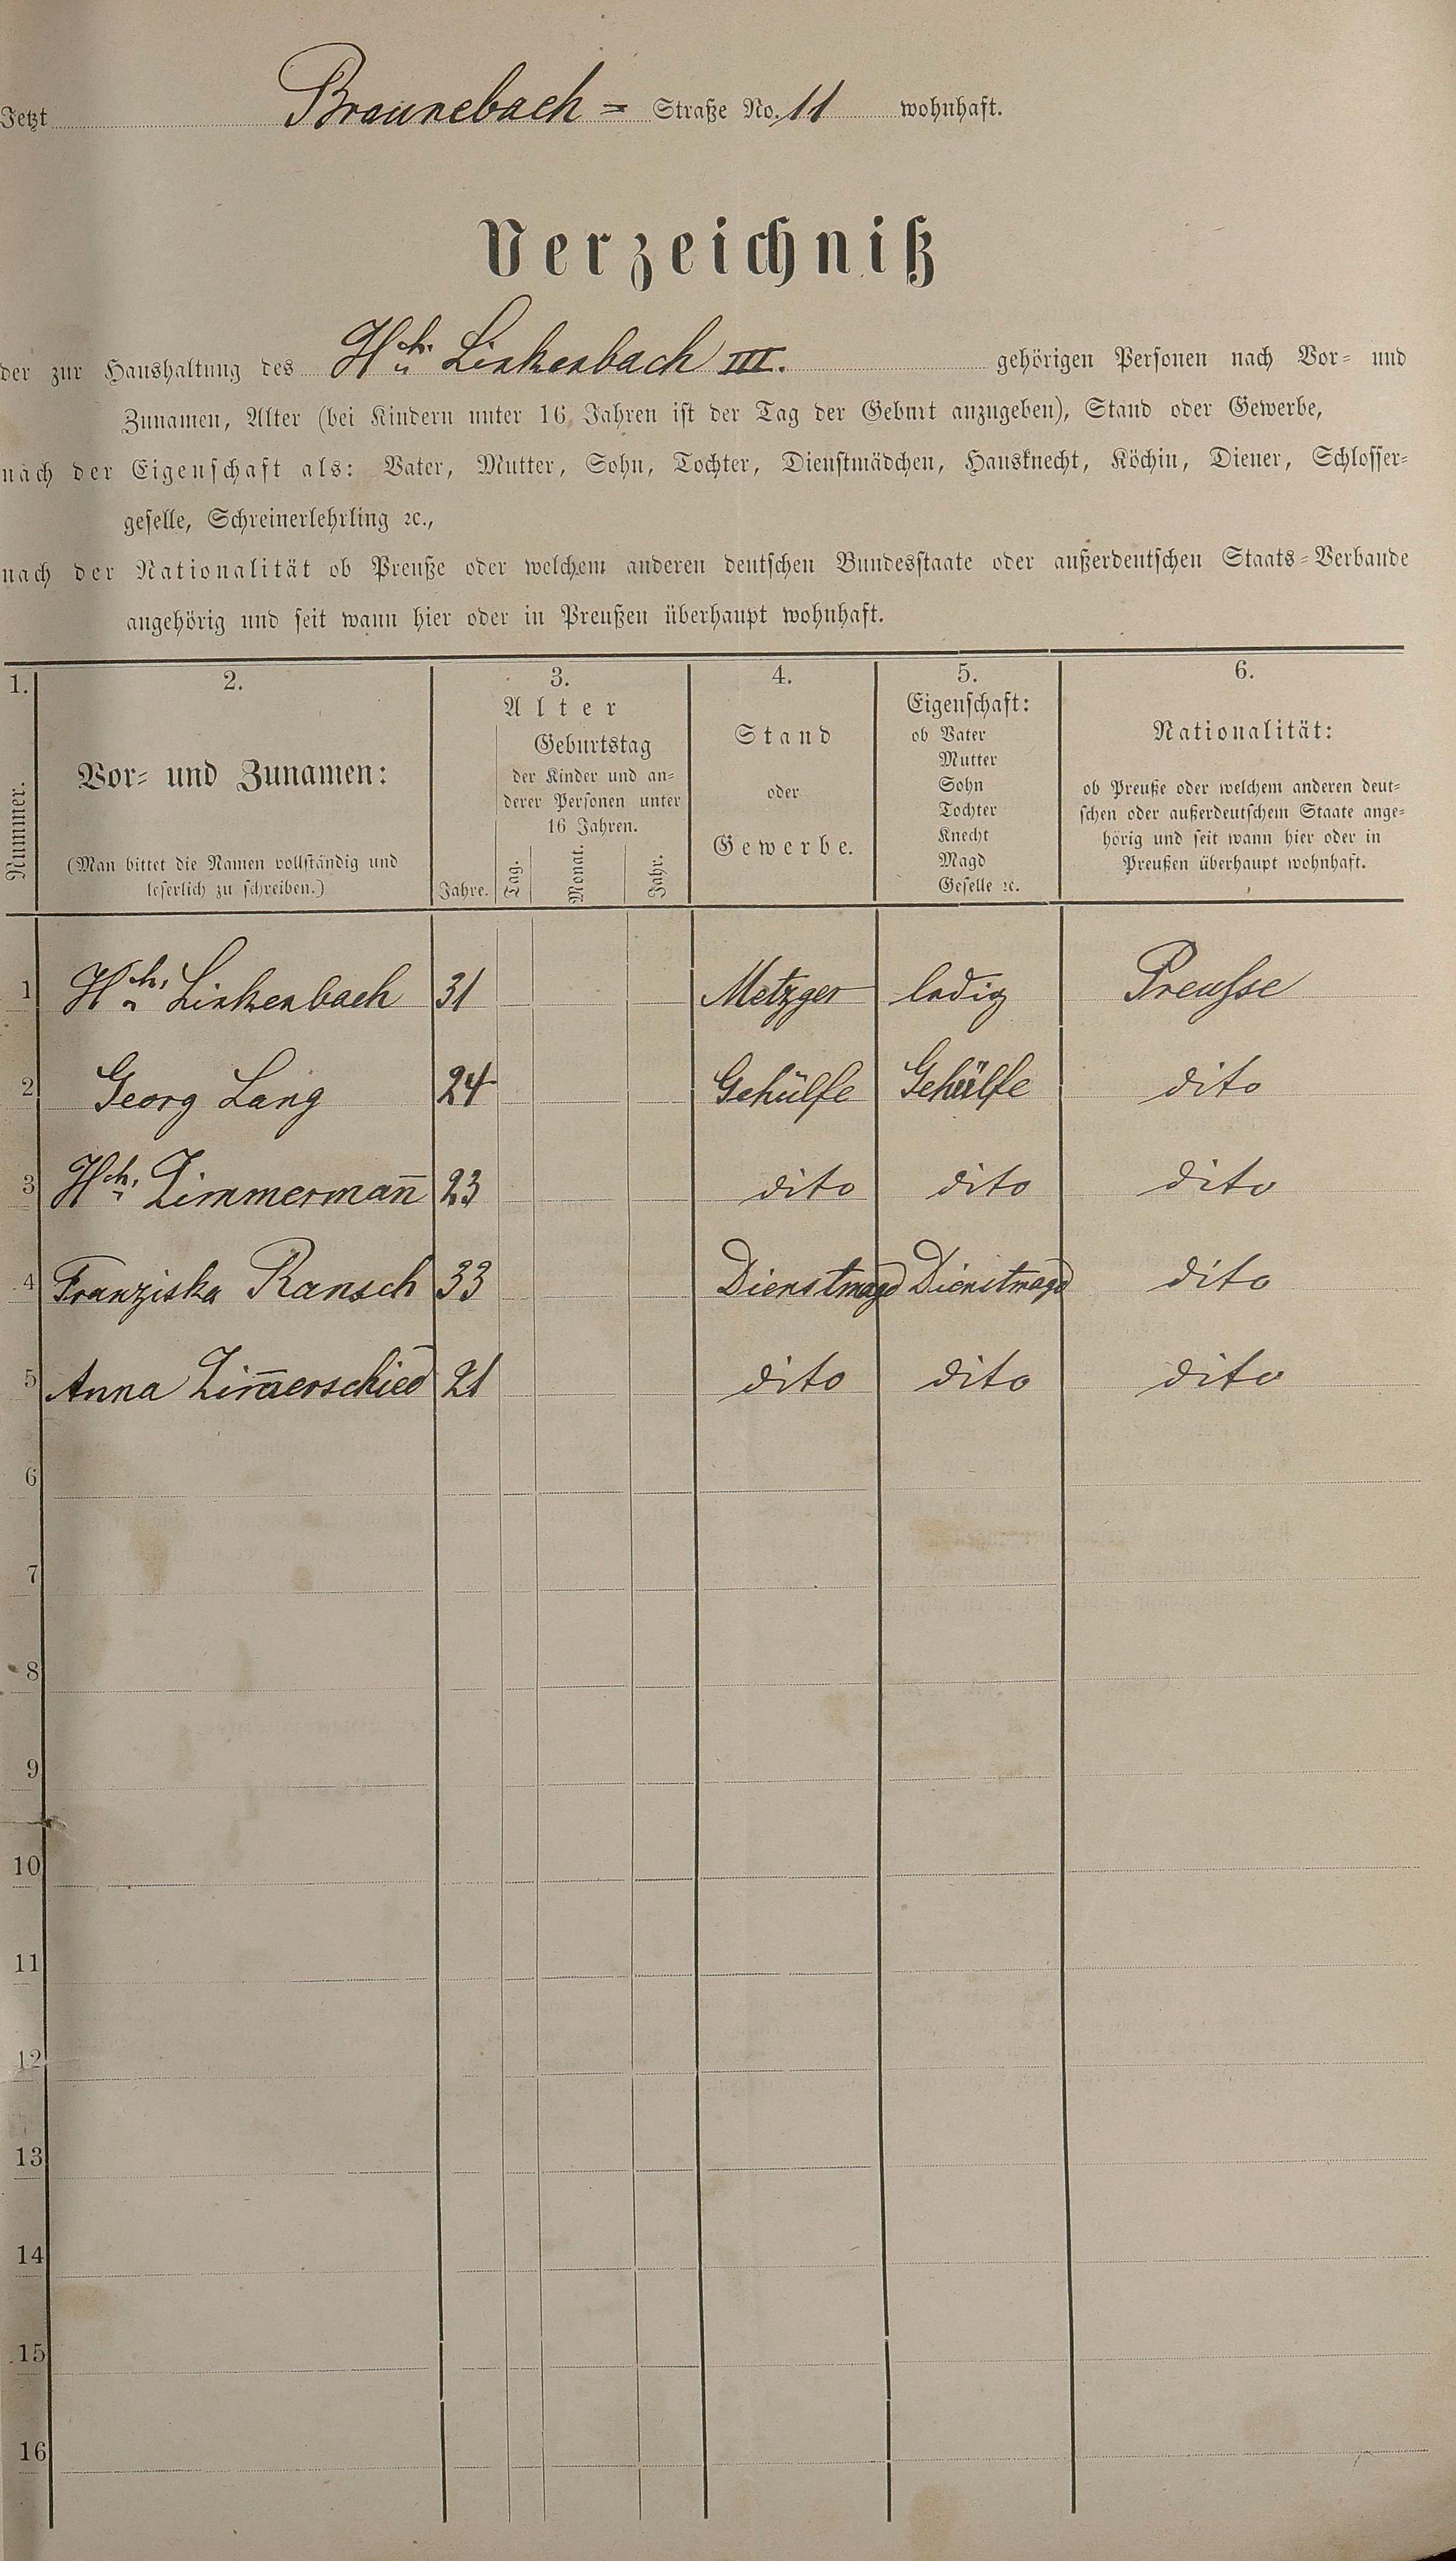 Jetzt Braunebach = Straße No. 11 wohnhaft.
Verzeichniß
der zur Haushaltung des Hch. Linkenbach III. gehörigen Personen nach Vor- und
Zunamen, Alter (bei Kindern unter 16 Jahren ist der Tag der Geburt anzugeben), Stand oder Gewerbe,
nach der Eigenschaft als: Vater, Mutter, Sohn, Tochter, Dienstmädchen, Hausknecht, Köchin, Diener, Schlosser-
geselle, Schreinerlehrling ꝛc.,
nach der Nationalität ob Preuße oder welchem anderen deutschen Bundesstaate oder außerdeutschen Staats-Verbande
angehörig und seit wann hier oder in Preußen überhaupt wohnhaft.
1. 2. 3. 4. 5. 6.
Nummer.
Vor- und Zunamen:
(Man bittet die Namen vollständig und
leserlich zu schreiben.)
Alter
Jahre.
Geburtstag
der Kinder und an-
derer Personen unter
16 Jahren.
Tag. Monat. Jahr.
Stand
oder
Gewerbe.
Eigenschaft:
ob Vater
Mutter
Sohn
Tochter
Knecht
Magd
Geselle ꝛc.
Nationalität:
ob Preuße oder welchem anderen deut-
schen oder außerdeutschem Staate ange-
hörig und seit wann hier oder in
Preußen überhaupt wohnhaft.
1 Hch. Linkenbach 31 Metzger ledig Preusse
2 Georg Lang 24 Gehülfe Gehülfe dito
3 Hch. Zimmermañ 23 dito dito dito
4 Franziska Ransch 33 Dienstmagd Dienstmagd dito
5 Anna Zim̄erschied 21 dito dito dito
6
7
8
9
10
11
12
13
14
15
16